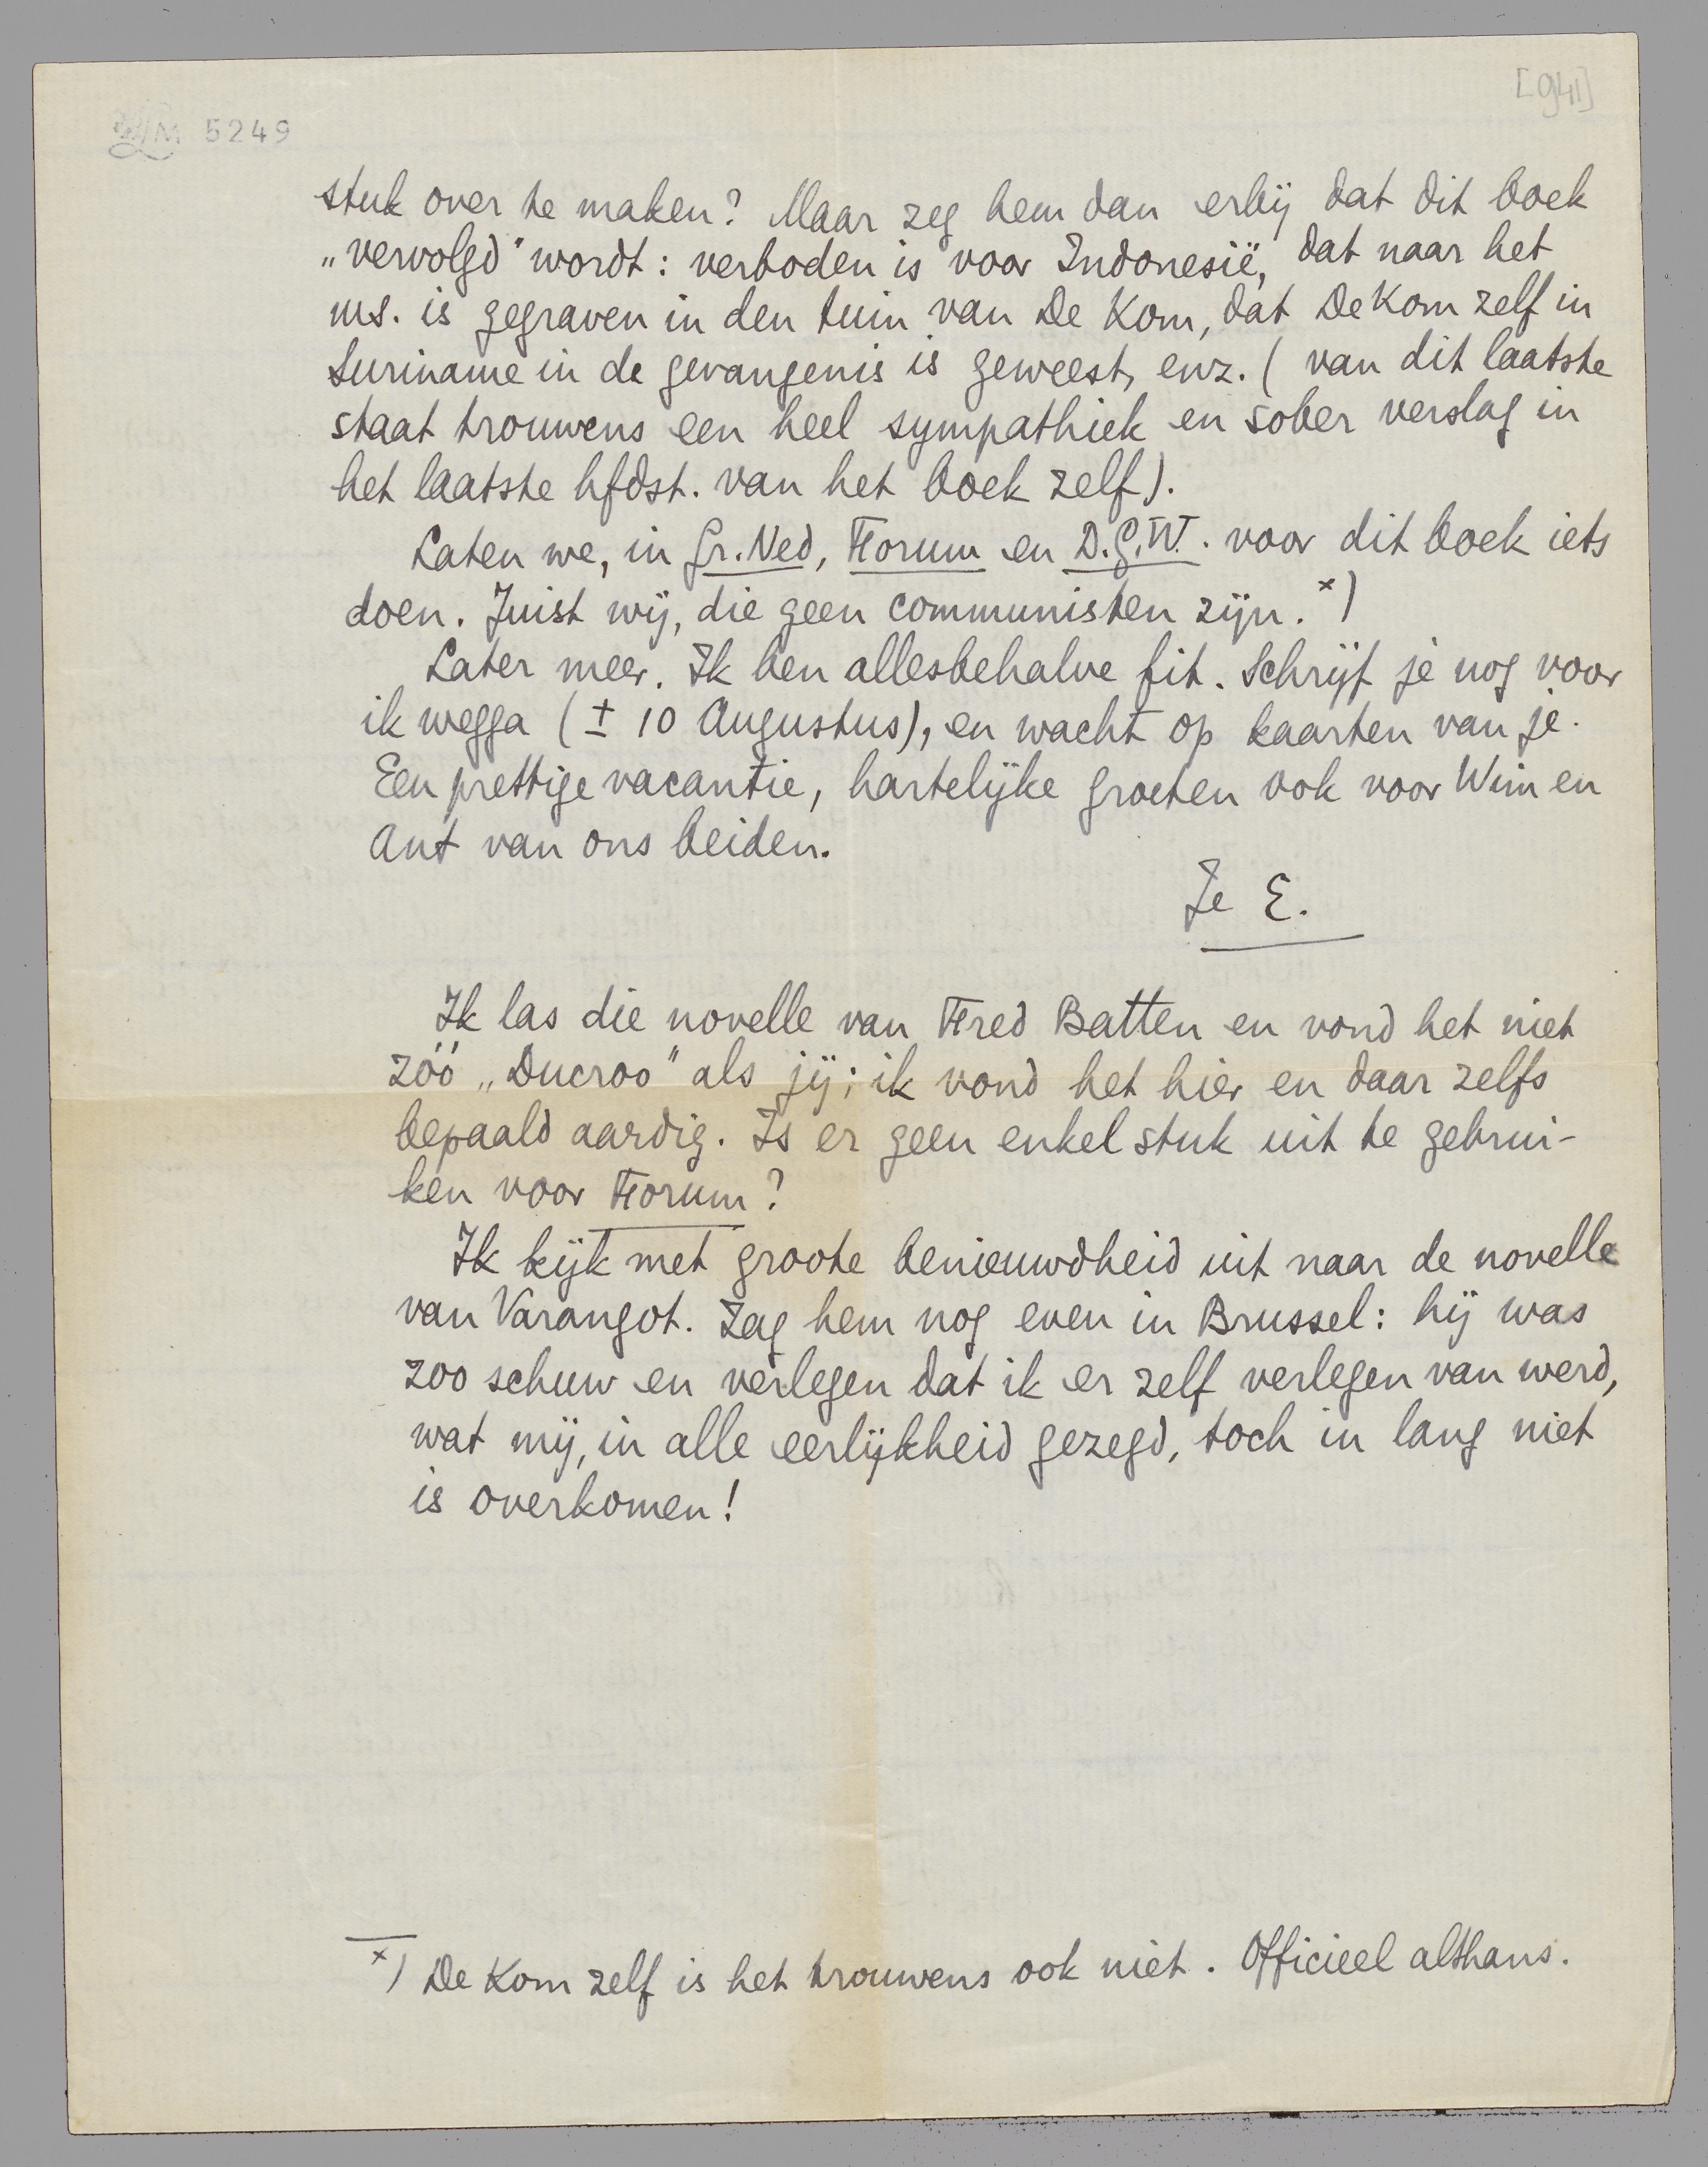 [941]
LM 5249
stuk over te maken? Maar zeg hem dan erbij dat dit boek
„vervolgd" wordt: verboden is voor Indonesië, dat naar het
ms. is gegraven in den tuin van De Kom, dat De Kom zelf in
Suriname in de gevangenis is geweest, enz. (van dit laatste
staat trouwens een heel sympathiek en sober verslag in
het laatste hfdst. van het boek zelf).
Laten we, in Gr. Ned, Forum en D.G.W. voor dit boek iets
doen. Juist wij, die geen communisten zijn. x)
Later meer. Ik ben allesbehalve fit. Schrijf je nog voor
ik wegga (± 10 Augustus), en wacht op kaarten van je.
Een prettige vacantie, hartelijke groeten ook voor Wim en
Ant van ons beiden.
Je E.
Ik las die novelle van Fred Batten en vond het niet
zóó „Ducroo" als jij; ik vond het hier en daar zelfs
bepaald aardig. Is er geen enkel stuk uit te gebrui-
ken voor Forum?
Ik kijk met groote benieuwdheid uit naar de novelle
van Varangot. Zag hem nog even in Brussel: hij was
zoo schuw en verlegen dat ik er zelf verlegen van werd,
wat mij, in alle eerlijkheid gezegd, toch in lang niet
is overkomen!
x) De Kom zelf is het trouwens ook niet. Officieel althans.